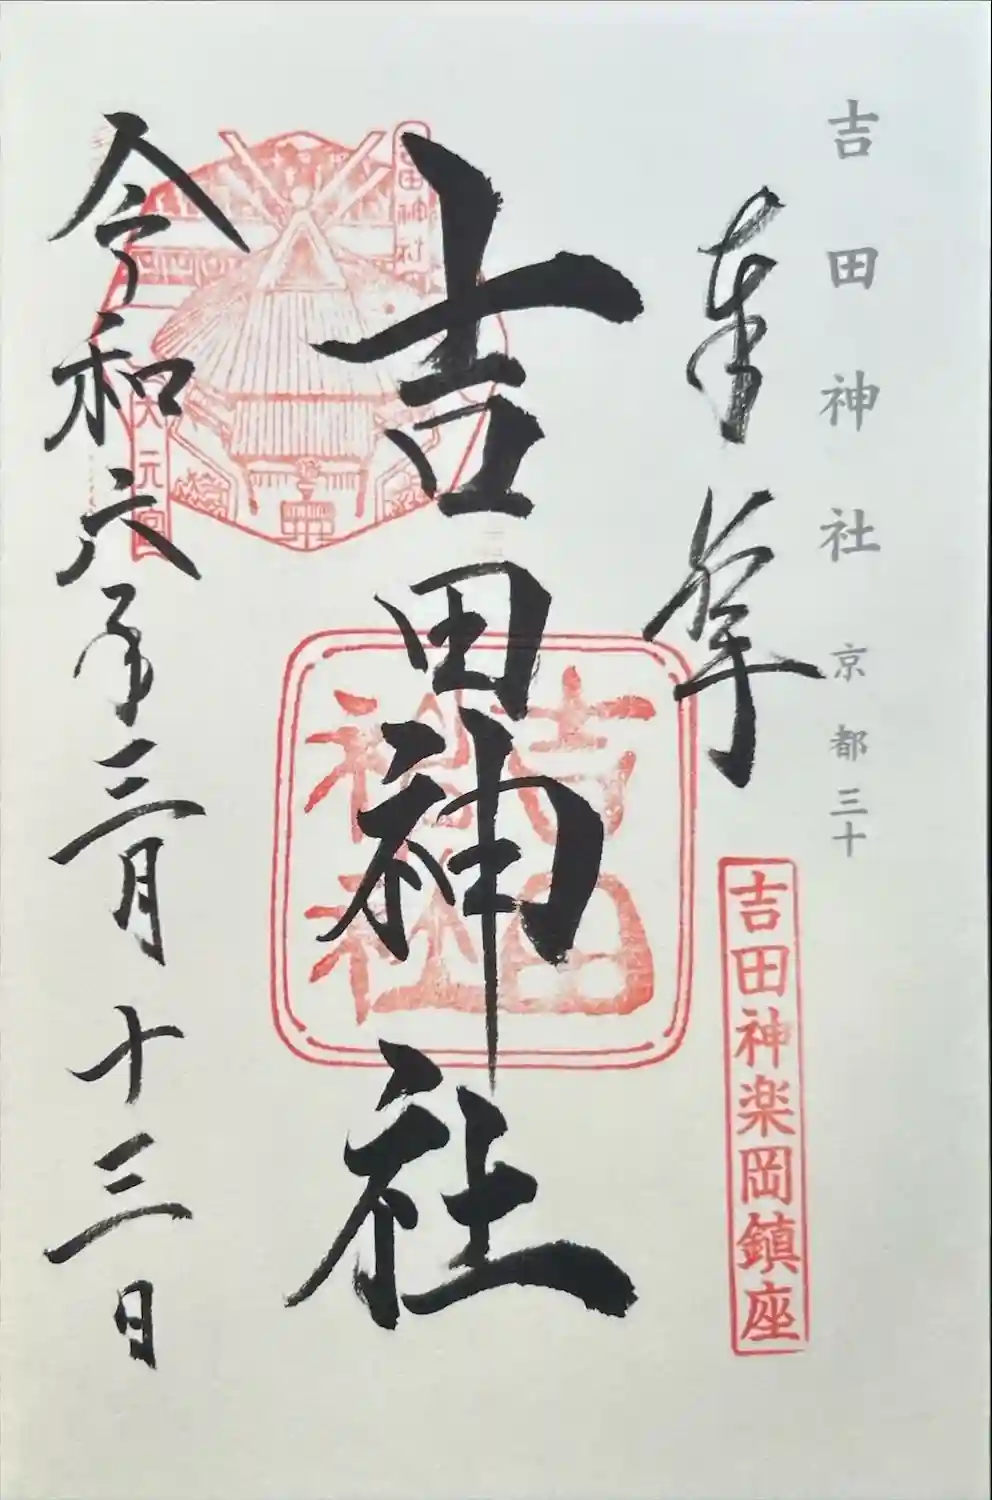 吉田神社 京都三十
奉拝
吉田神楽岡鎮座
吉田神社
吉田神社
吉田神社
大元宮
令和六年三月十三日